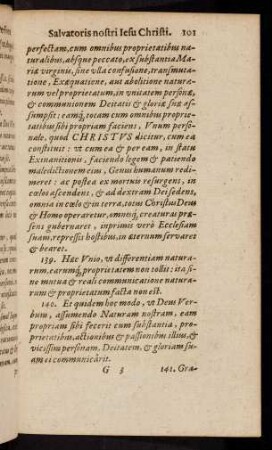 Salvatoris nostri Iesu Christi. 101
perfectam, cum omnibus proprietatibus na-
turalibus, absque peccato, ex substantia Ma-
riæ virginis, sine ulla confusione, transmuta-
tione, Exæquatione, aut abolitione natura-
rum vel proprietatum, in unitatem personæ,
& communionem Deitatis & gloriæ suæ as-
sumpsit: eamq́; totam cum omnibus proprie-
tatibus sibi propriam faciens, Unum perso-
nale, quod CHRISTVS dicitur, cum ea
constituit: vt cum ea & per eam, in statu
Exinanitionis, faciendo legem & patiendo
maledictionem eius, Genus humanum redi-
meret: ac postea ex mortuis resurgens, in
cœlos ascendens, & ad dextram Dei sedens,
omnia in cœlo & in terra, totus Christus Deus
& Homo operaretur, omniq́; creaturæ præ-
sens gubernaret, inprimis verò Ecclesiam
suam, repressis hostibus, in æternum servaret
& bearet.
139. Hæc Vnio, vt differentiam natura-
rum, earumq́; proprietatem non tollit: ita si-
ne mutua & reali communicatione natura-
rum & proprietatum facta non est.
140. Et quidem hoc modo, vt Deus Ver-
bum, assumendo Naturam nostram, eam
propriam sibi fecerit cum substantia, pro-
prietatibus, actionibus & passionibus illius, &
vicissim personam, Deitatem, & gloriam su-
am ei communicârit.
G 3 141. Gra-